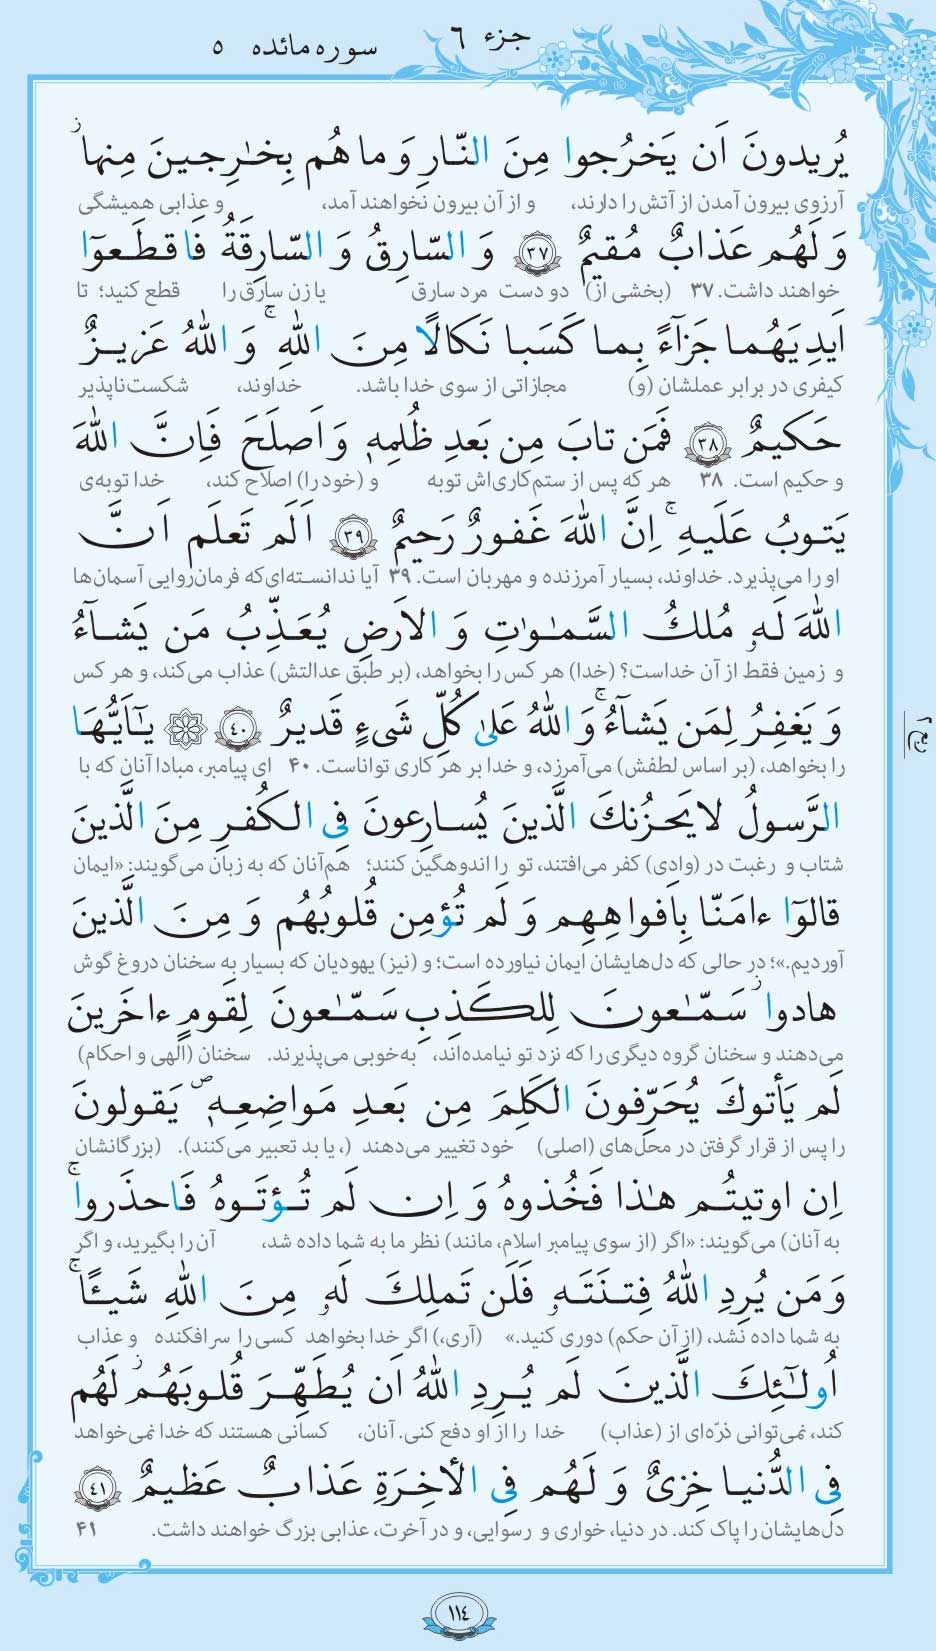 جزء ٦
سوره مائده ٥
یُریدونَ اَن یَخرُجوا مِنَ النّارِ وَ ما هُم بِخٰرِجینَ مِنهاۖ
آرزوی بیرون آمدن از آتش را دارند، و از آن بیرون نخواهند آمد، و عذابی همیشگی
وَ لَهُم عَذابٌ مُقیمٌ ﴿٣٧﴾ وَ السّارِقُ وَ السّارِقَةُ فَاقطَعوٓا
خواهند داشت. ٣٧ (بخشی از) دو دست مرد سارق یا زن سارق را قطع کنید؛ تا
اَیدِیَهُما جَزآءً بِما کَسَبا نَکالًا مِنَ اللّٰهِۚ وَ اللّٰهُ عَزیزٌ
کیفری در برابر عملشان (و) مجازاتی از سوی خدا باشد. خداوند، شکست‌ناپذیر
حَکیمٌ ﴿٣٨﴾ فَمَن تابَ مِن بَعدِ ظُلمِهٖ وَ اَصلَحَ فَاِنَّ اللّٰهَ
و حکیم است. ٣٨ هر که پس از ستم‌کاری‌اش توبه و (خود را) اصلاح کند، خدا توبه‌ی
یَتوبُ عَلَیهِۚ اِنَّ اللّٰهَ غَفورٌ رَحیمٌ ﴿٣٩﴾ اَلَم تَعلَم اَنَّ
او را می‌پذیرد. خداوند، بسیار آمرزنده و مهربان است. ٣٩ آیا ندانسته‌ای که فرمان‌روایی آسمان‌ها
اللّٰهَ لَهٗ مُلکُ السَّمٰوٰتِ وَ الاَرضِ یُعَذِّبُ مَن یَشآءُ
و زمین فقط از آن خداست؟ (خدا) هر کس را بخواهد، (بر طبق عدالتش) عذاب می‌کند، و هر کس
وَ یَغفِرُ لِمَن یَشآءُۚ وَ اللّٰهُ عَلیٰ کُلِّ شَیءٍ قَدیرٌ ﴿٤٠﴾ یٰٓاَیُّهَا
را بخواهد، (بر اساس لطفش) می‌آمرزد، و خدا بر هر کاری تواناست. ٤٠ ای پیامبر، مبادا آنان که با
الرَّسولُ لا یَحزُنکَ الَّذینَ یُسارِعونَ فِی الکُفرِ مِنَ الَّذینَ
شتاب و رغبت در (وادی) کفر می‌افتند، تو را اندوهگین کنند؛ هم‌آنان که به زبان می‌گویند: «ایمان
قالوٓا ءامَنّا بِاَفواهِهِم وَ لَم تُؤمِن قُلوبُهُم وَ مِنَ الَّذینَ
آوردیم.»؛ در حالی که دل‌هایشان ایمان نیاورده است؛ و (نیز) یهودیان که بسیار به سخنان دروغ گوش
هادواۛ سَمّٰعونَ لِلکَذِبِ سَمّٰعونَ لِقَومٍ ءاخَرینَ
می‌دهند و سخنان گروه دیگری را که نزد تو نیامده‌اند، به‌خوبی می‌پذیرند. سخنان (الهی و احکام)
لَم یَأتوکَ یُحَرِّفونَ الکَلِمَ مِن بَعدِ مَواضِعِهٖۖ یَقولونَ
را پس از قرار گرفتن در محل‌های (اصلی) خود تغییر می‌دهند (، یا بد تعبیر می‌کنند). (بزرگانشان
اِن اوتیتُم هٰذا فَخُذوهُ وَ اِن لَم تُؤتَوهُ فَاحذَرواۚ
به آنان) می‌گویند: «اگر (از سوی پیامبر اسلام، مانند) نظر ما به شما داده شد، آن را بگیرید، و اگر
وَ مَن یُرِدِ اللّٰهُ فِتنَتَهٗ فَلَن تَملِکَ لَهٗ مِنَ اللّٰهِ شَیئًاۚ
به شما داده نشد، (از آن حکم) دوری کنید.» (آری،) اگر خدا بخواهد کسی را سرافکنده و عذاب
اُولٰٓئِکَ الَّذینَ لَم یُرِدِ اللّٰهُ اَن یُطَهِّرَ قُلوبَهُمۚ لَهُم
کند، نمی‌توانی ذرّه‌ای از (عذاب) خدا را از او دفع کنی. آنان، کسانی هستند که خدا نمی‌خواهد
فِی الدُّنیا خِزیٌ وَ لَهُم فِی الأٰخِرَةِ عَذابٌ عَظیمٌ ﴿٤١﴾
دل‌هایشان را پاک کند. در دنیا، خواری و رسوایی، و در آخرت، عذابی بزرگ خواهند داشت. ٤١
١١٤